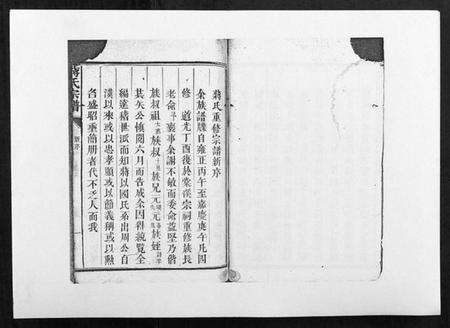 蔣氏重修宗譜新序
余族譜牒自雍正丙午至嘉慶庚午凡四
修道光丁酉後於棠溪宗祠重修族長
老命予襄事余謝不敏而委命益堅乃偕
族叔祖 族叔 族兄元 元 族姪
其矢公慎閱六月而告成余因得統覽全
編達稽世派而知蔣以國氏系出周公自
漢以來或以忠孝顯或以節義稱或以勲
名盛昭垂簡册者代不乏人而我
蔣氏宗譜
新序